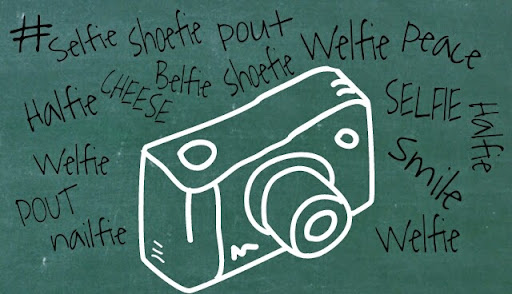 #selfie shoefie pout Welfie peace
Halfie CHEESE Belfie shoefie SELFIE Halfie
Welfie smile
POUT
nailfie Welfie